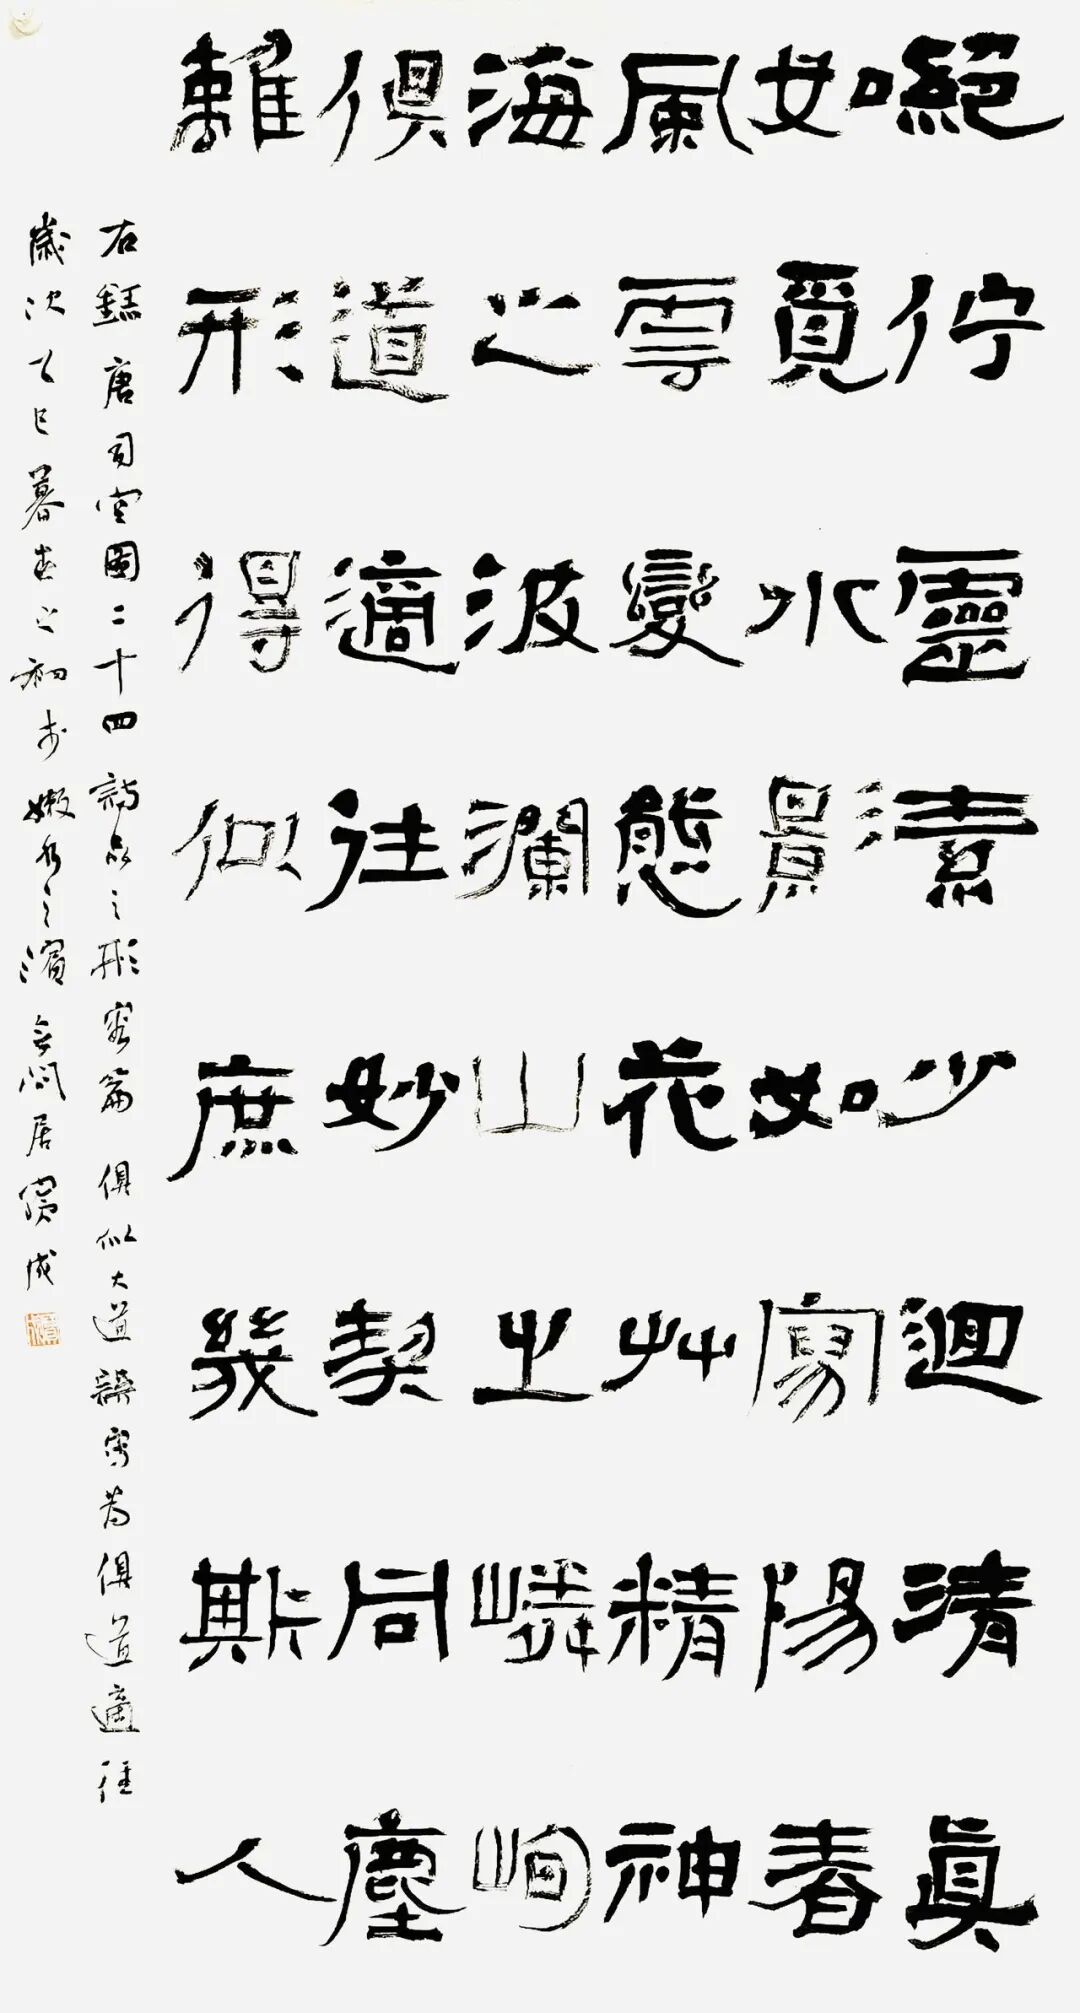 絕佇靈素少迴清眞
如覓水影如寫陽春
風雲變態花艸精神
海之波瀾山之嶙峋
俱道適往妙契同塵
離形得似庶幾斯人
右錄唐司空圖二十四詩品之形容篇俱似大道誤寫為俱道適往
歲次乙巳暮春之初於嫩水之濱居成